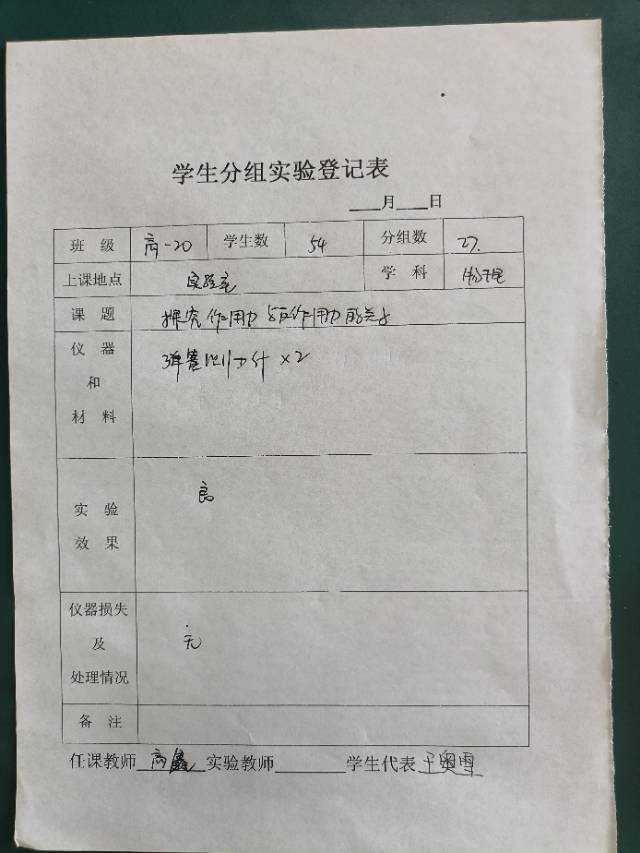 学生分组实验登记表
___月___日
班 级 高一20 学生数 54 分组数 27.
上课地点 实验室 学 科 物理
课 题 探究作用力与反作用力的关系
仪 器
和
材 料
弹簧测力计 ×2
实 验
效 果
良
仪器损失
及
处理情况
无
备 注
任课教师 高鑫 实验教师______学生代表 王奥雪